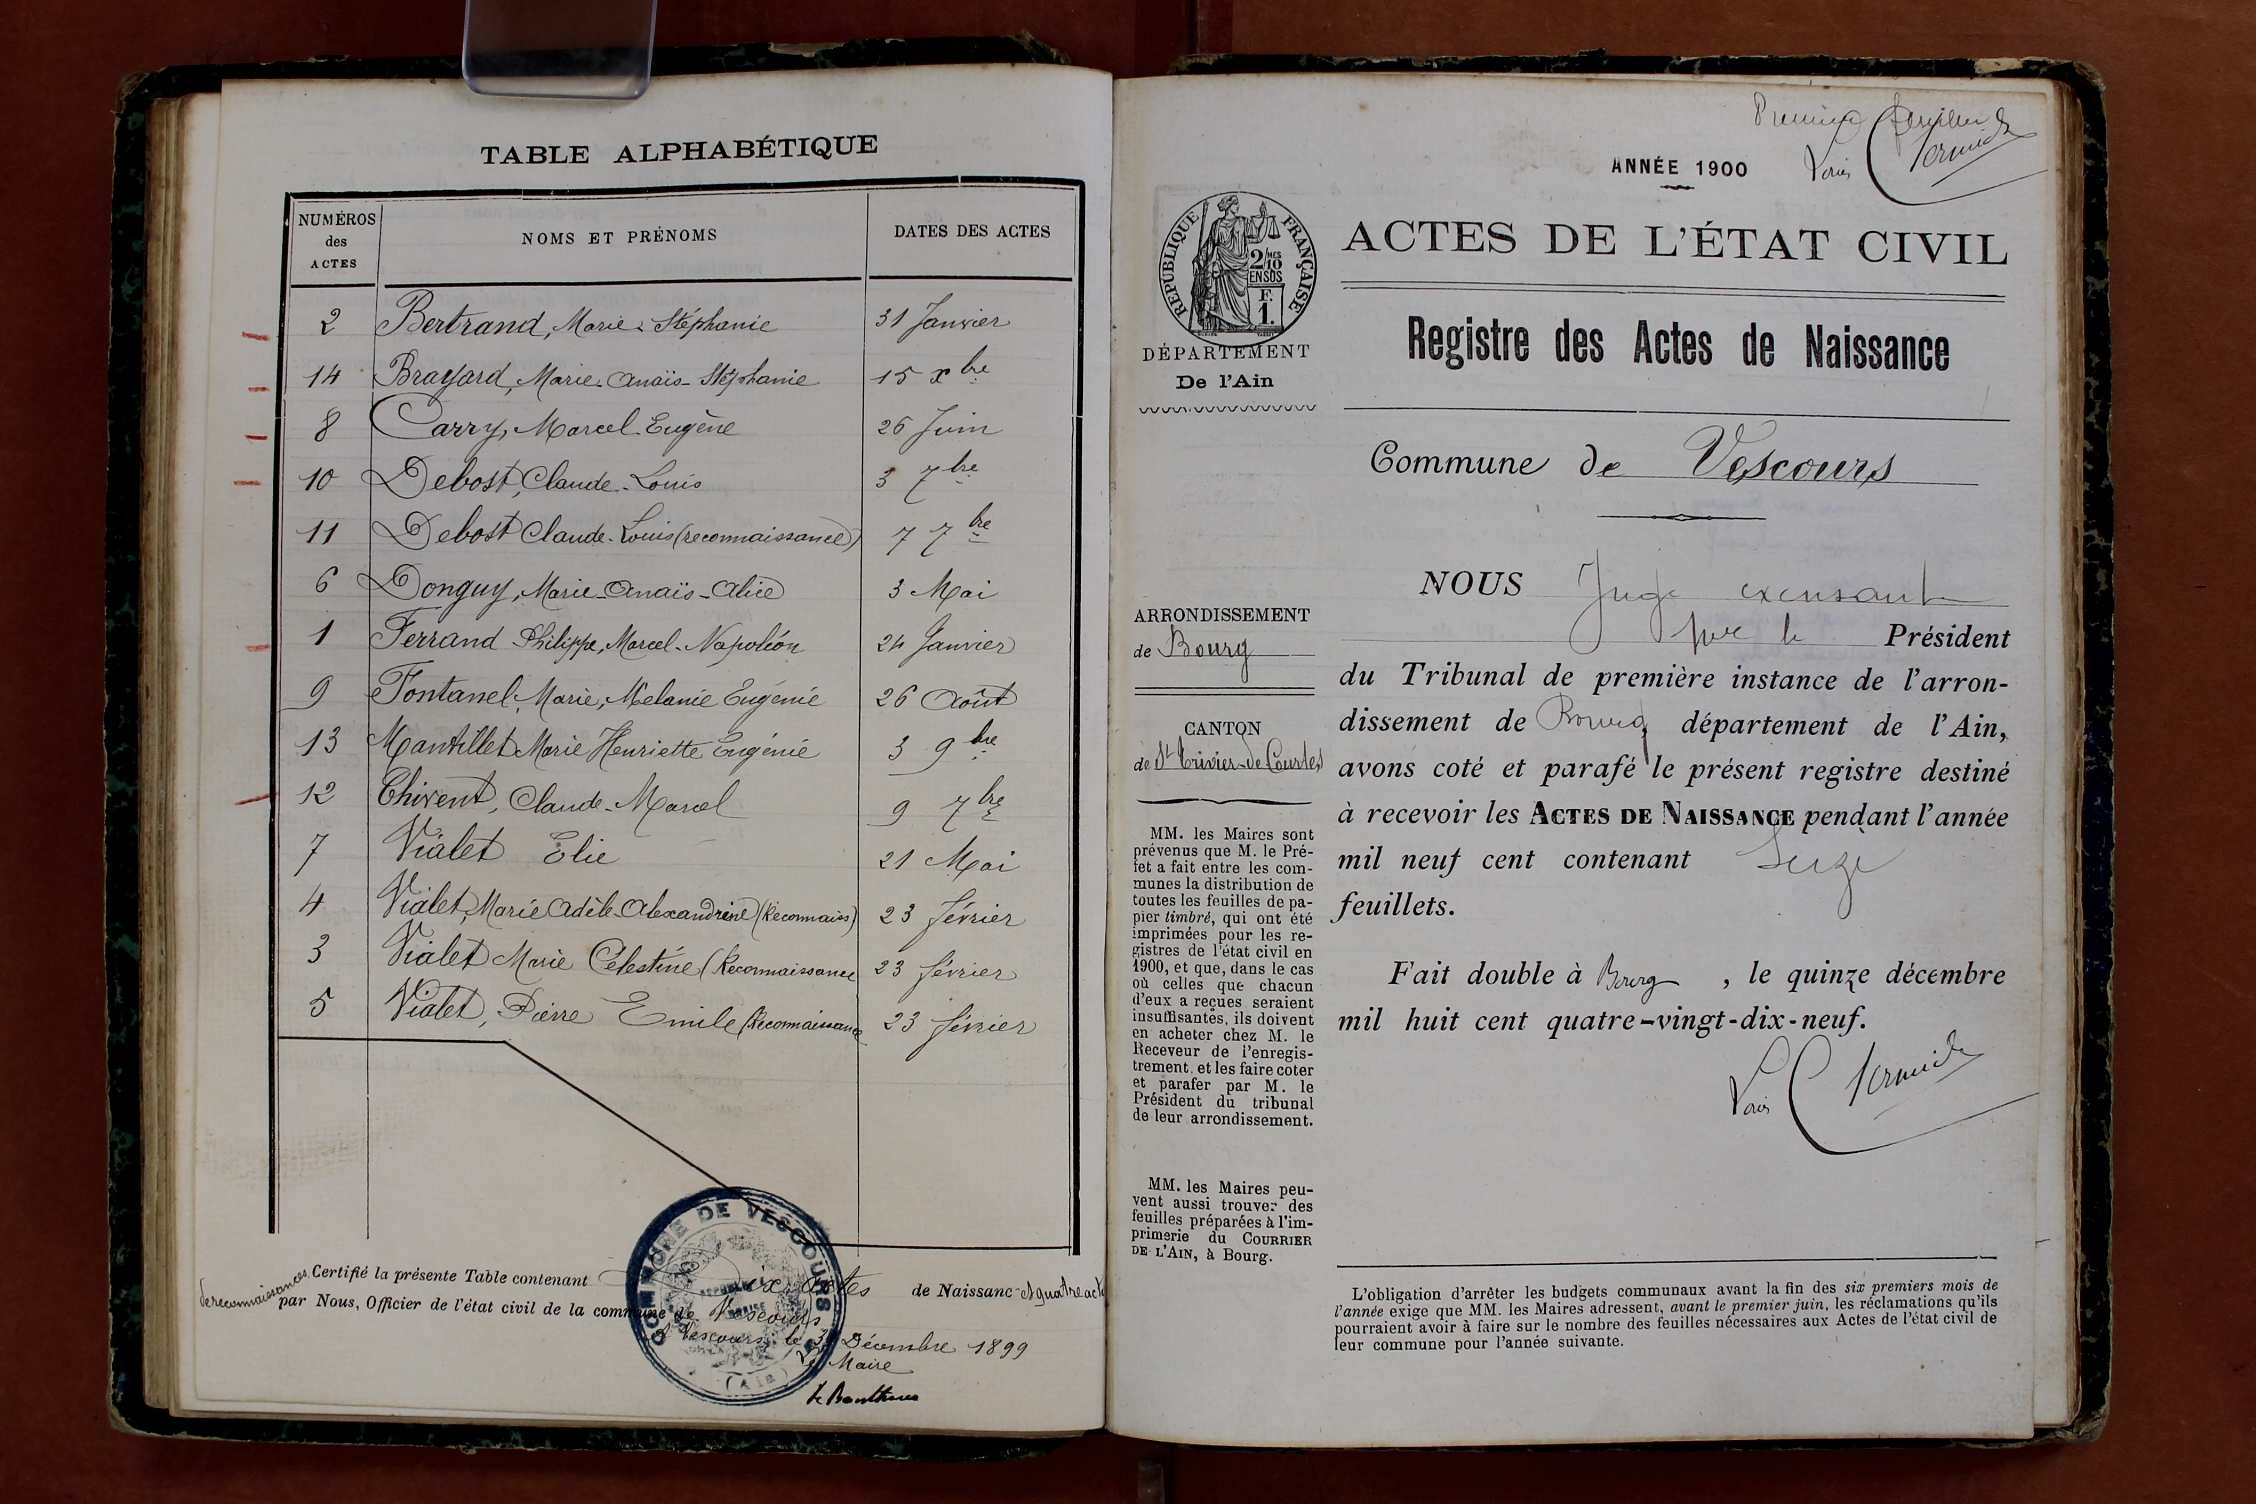 TABLE ALPHABÉTIQUE
NUMÉROS des ACTES
NOMS ET PRÉNOMS
DATES DES ACTES
2 Bertrand, Marie-Stéphanie 31 Janvier
14 Brayard, Marie-Anaïs-Stéphanie 15 xbre
8 Carry, Marcel-Eugène 26 Juin
10 Debost, Claude-Louis 3 7bre
11 Debost Claude-Louis (reconnaissance) 7 7bre
6 Donguy, Marie-Anaïs-Alice 3 Mai
1 Ferrand Philippe, Marcel-Napoléon 24 Janvier
9 Fontanel, Marie, Mélanie Eugénie 26 Août
13 Mantillet Marie Henriette Eugénie 3 9bre
12 Chirent, Claude-Marcel 9 7bre
7 Vialet Elie 21 Mai
4 Vialet, Marie Adèle-Alexandrine (Reconnaiss) 23 février
3 Vialet Marie Célestine (Reconnaissance 23 février
5 Vialet, Pierre Emile (Reconnaissance 23 février
Certifié la présente Table contenant dix actes de Naissanc et quatre acte
de reconnaissances
par Nous, Officier de l'état civil de la commune de Vescours
A Vescours, le 31 Décembre 1899
Le Maire
COMMUNE DE VESCOURS
(Ain)
Premier feuillet
ANNÉE 1900
ACTES DE L'ÉTAT CIVIL
RÉPUBLIQUE FRANÇAISE
2/10 MES
EN SUS
F.
1.
DÉPARTEMENT
De l'Ain
Registre des Actes de Naissance
Commune de Vescours
NOUS Juge
par le Président
du Tribunal de première instance de l'arron-
dissement de Bourg département de l'Ain,
avons coté et parafé le présent registre destiné
à recevoir les ACTES DE NAISSANCE pendant l'année
mil neuf cent contenant Seize
feuillets.
Fait double à Bourg , le quinze décembre
mil huit cent quatre-vingt-dix-neuf.
ARRONDISSEMENT
de Bourg
CANTON
de St Trivier-de-Courtes
MM. les Maires sont
prévenus que M. le Pré-
fet a fait entre les com-
munes la distribution de
toutes les feuilles de pa-
pier timbré, qui ont été
imprimées pour les re-
gistres de l'état civil en
1900, et que, dans le cas
où celles que chacun
d'eux a reçues seraient
insuffisantes, ils doivent
en acheter chez M. le
Receveur de l'enregis-
trement, et les faire coter
et parafer par M. le
Président du tribunal
de leur arrondissement.
MM. les Maires peu-
vent aussi trouver des
feuilles préparées à l'im-
primerie du COURRIER
DE L'AIN, à Bourg.
L'obligation d'arrêter les budgets communaux avant la fin des six premiers mois de
l'année exige que MM. les Maires adressent, avant le premier juin, les réclamations qu'ils
pourraient avoir à faire sur le nombre des feuilles nécessaires aux Actes de l'état civil de
leur commune pour l'année suivante.